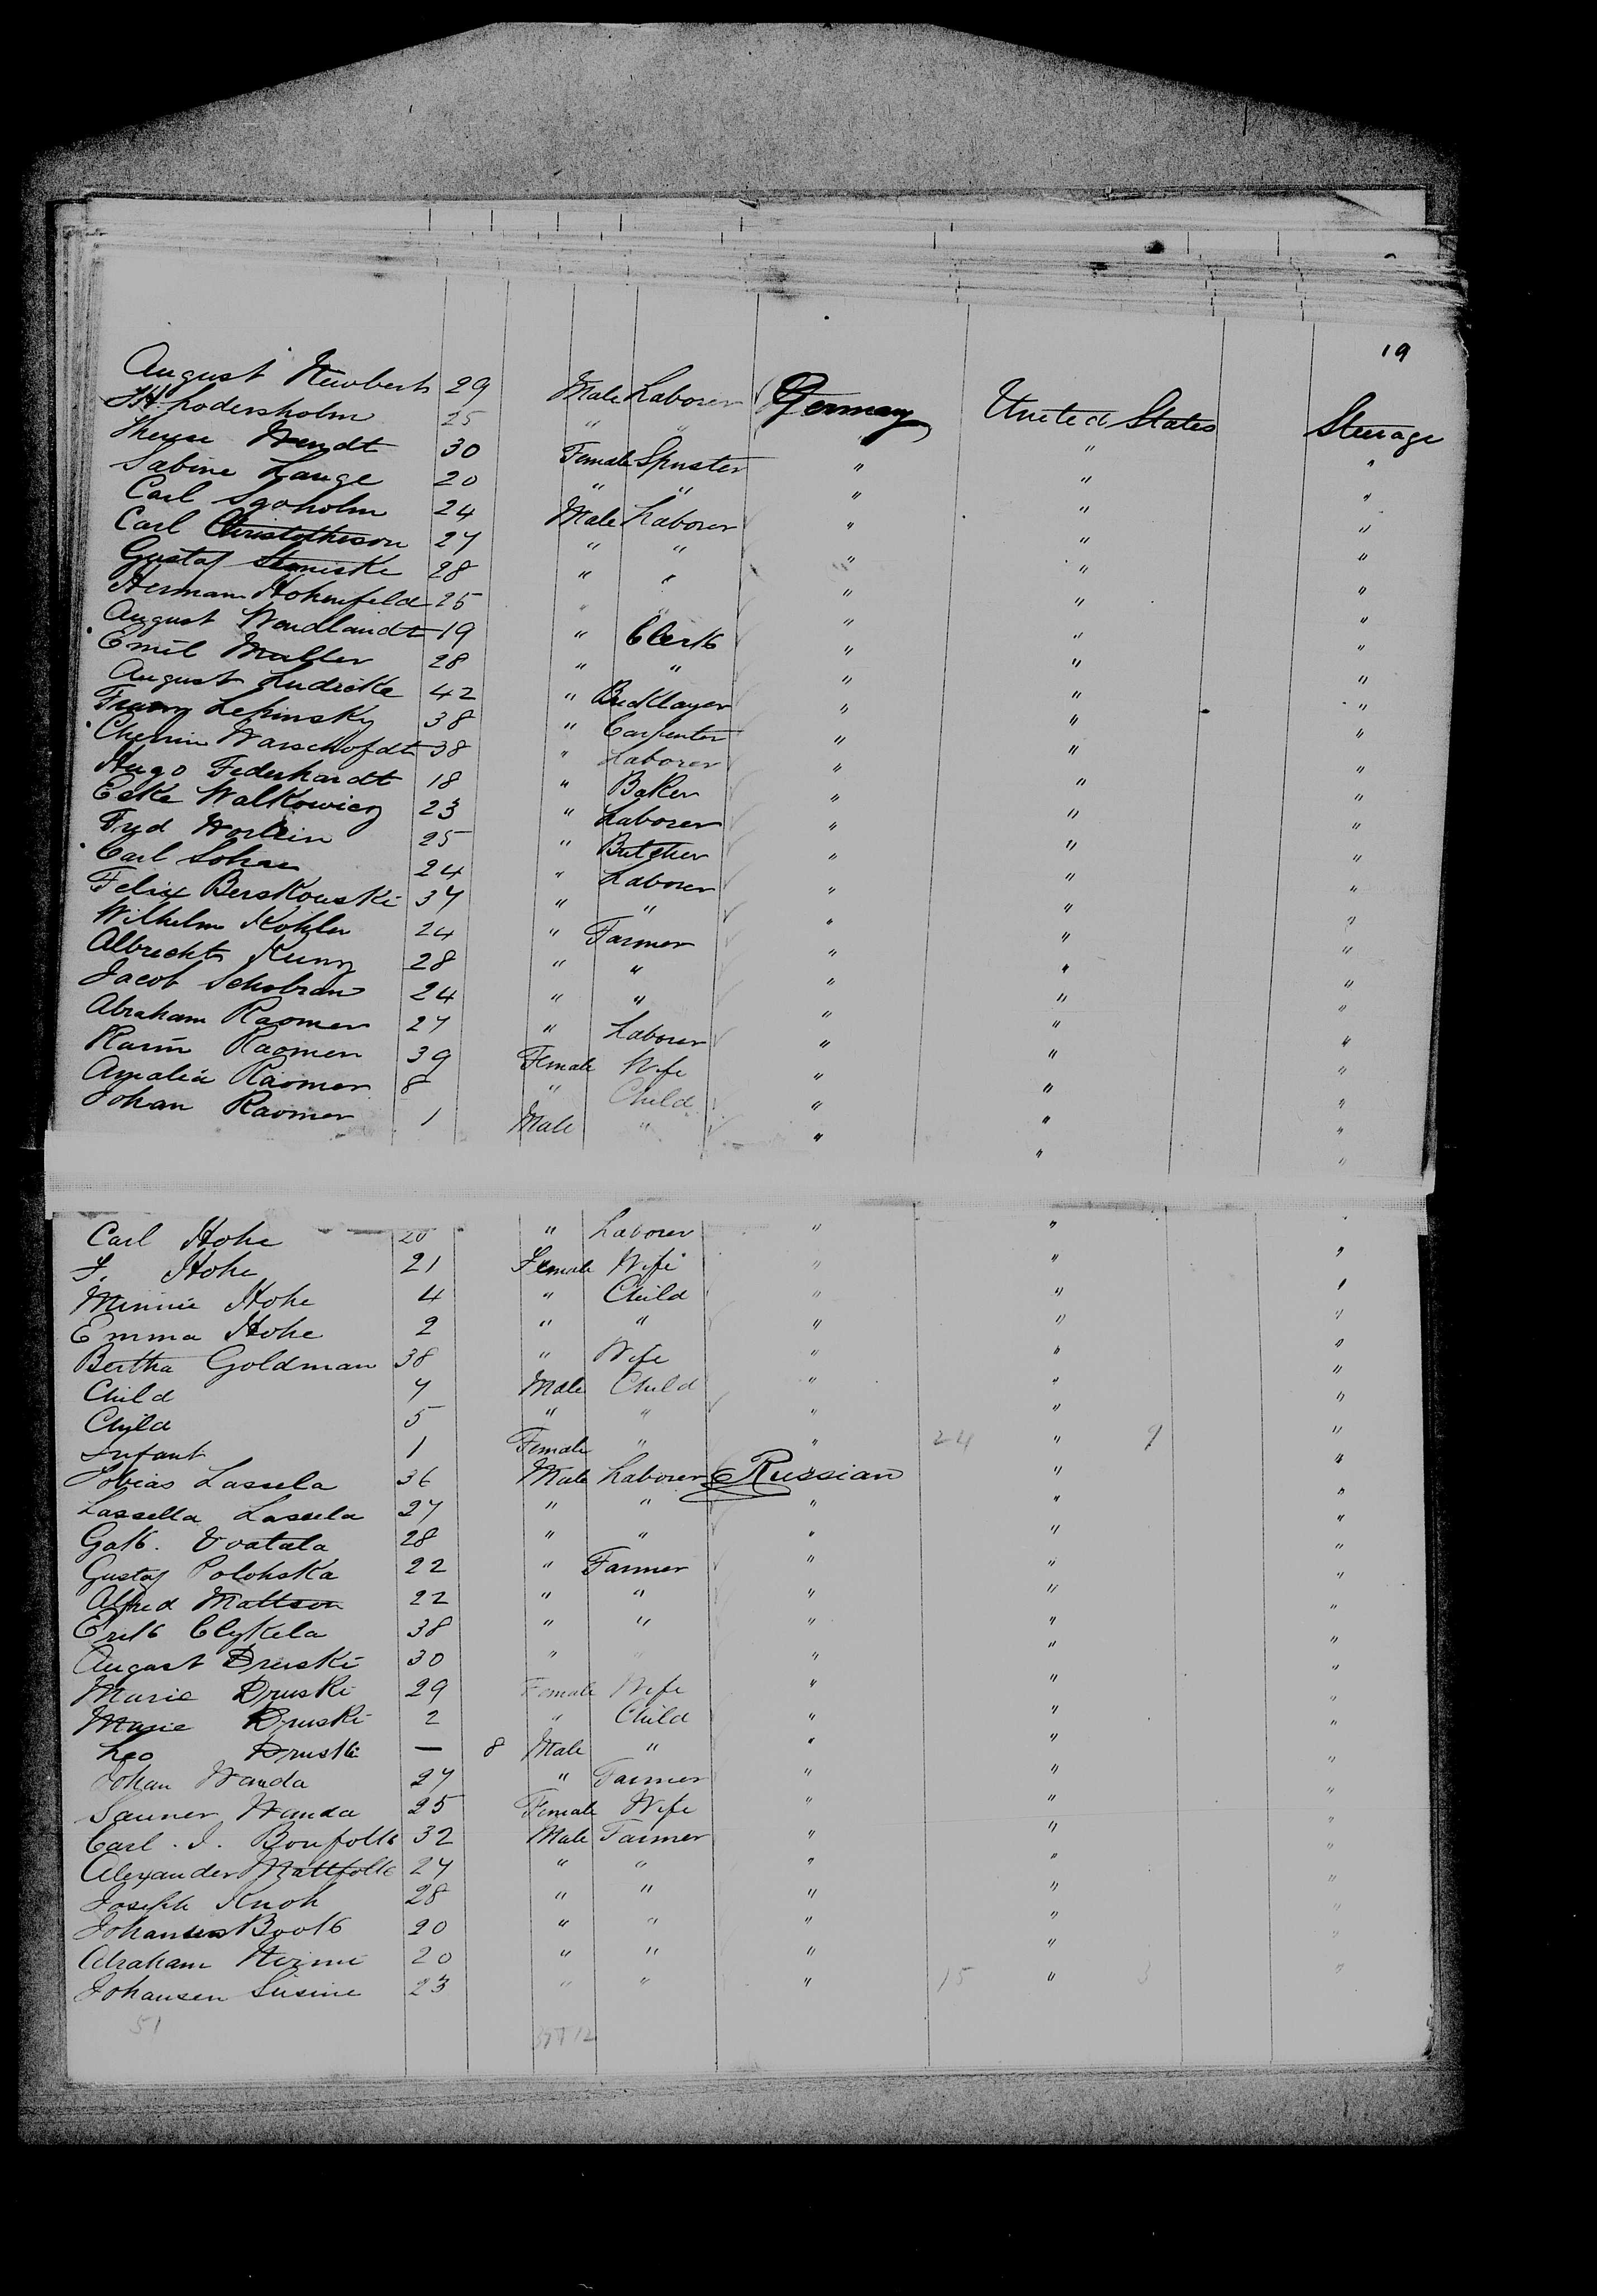 19
August Neubert 29 Male Laborer Germany United States Steerage
H. Lodersholm 25 " " " " "
Wendt 30 Female Spinster " " "
Sabine Lange 20 " " " " "
Carl Sgoholm 24 Male Laborer " " "
Carl Christotheson 27 " " " " "
Gustaf Staniske 28 " " " " "
Herman Hohenfeld 25 " " " " "
August Wendlandt 19 " Clerk " " "
Emil Maller 28 " " " " "
August Ludicke 42 " Bricklayer " " "
Lepinsky 38 " Carpenter " " "
Warschofdt 38 " Laborer " " "
Hugo Federhardt 18 " Baker " " "
Eske Walkowicz 23 " Laborer " " "
Fred 25 " Butcher " " "
Carl 24 " Laborer " " "
Felix Berskowski 37 " " " " "
Wilhelm Kohler 24 " Farmer " " "
Albrecht Kunz 28 " " " " "
Jacob Schobran 24 " " " " "
Abraham Raomer 27 " Laborer " " "
Karin Raomer 39 Female Wife " " "
Amalia Raomer 8 " Child " " "
Johan Raomer 1 Male " " " "
Carl Hohe 20 " Laborer " " "
F. Hohe 21 Female Wife " " "
Minnie Hohe 4 " Child " " "
Emma Hohe 2 " " " " "
Bertha Goldman 38 " Wife " " "
Child 7 Male Child " " "
Child 5 " " " " "
Infant 1 Female " " 24 " 9 "
Tobias Lassela 36 Male Laborer Russian " "
Lassella Lassela 27 " " " " "
Gak. Voatala 28 " " " " "
Gustaf Polohska 22 " Farmer " " "
Alfred Mattson 22 " " " " "
Erik Clykela 38 " " " " "
August Druski 30 " " " " "
Marie Druski 29 Female Wife " " "
Marie Druski 2 " Child " " "
Leo Druski — 8 Male " " " "
Johan Wanda 27 " Farmer " " "
Sauner Wanda 25 Female Wife " " "
Carl . J. Bonfolk 32 Male Farmer " " "
Alexander Mattfolk 27 " " " " "
Joseph Knoh 28 " " " " "
Johansen Book 20 " " " " "
Abraham Nirmi 20 " " " " "
Johansen Susine 23 " " " 15 " 3 "
51 39 + 12